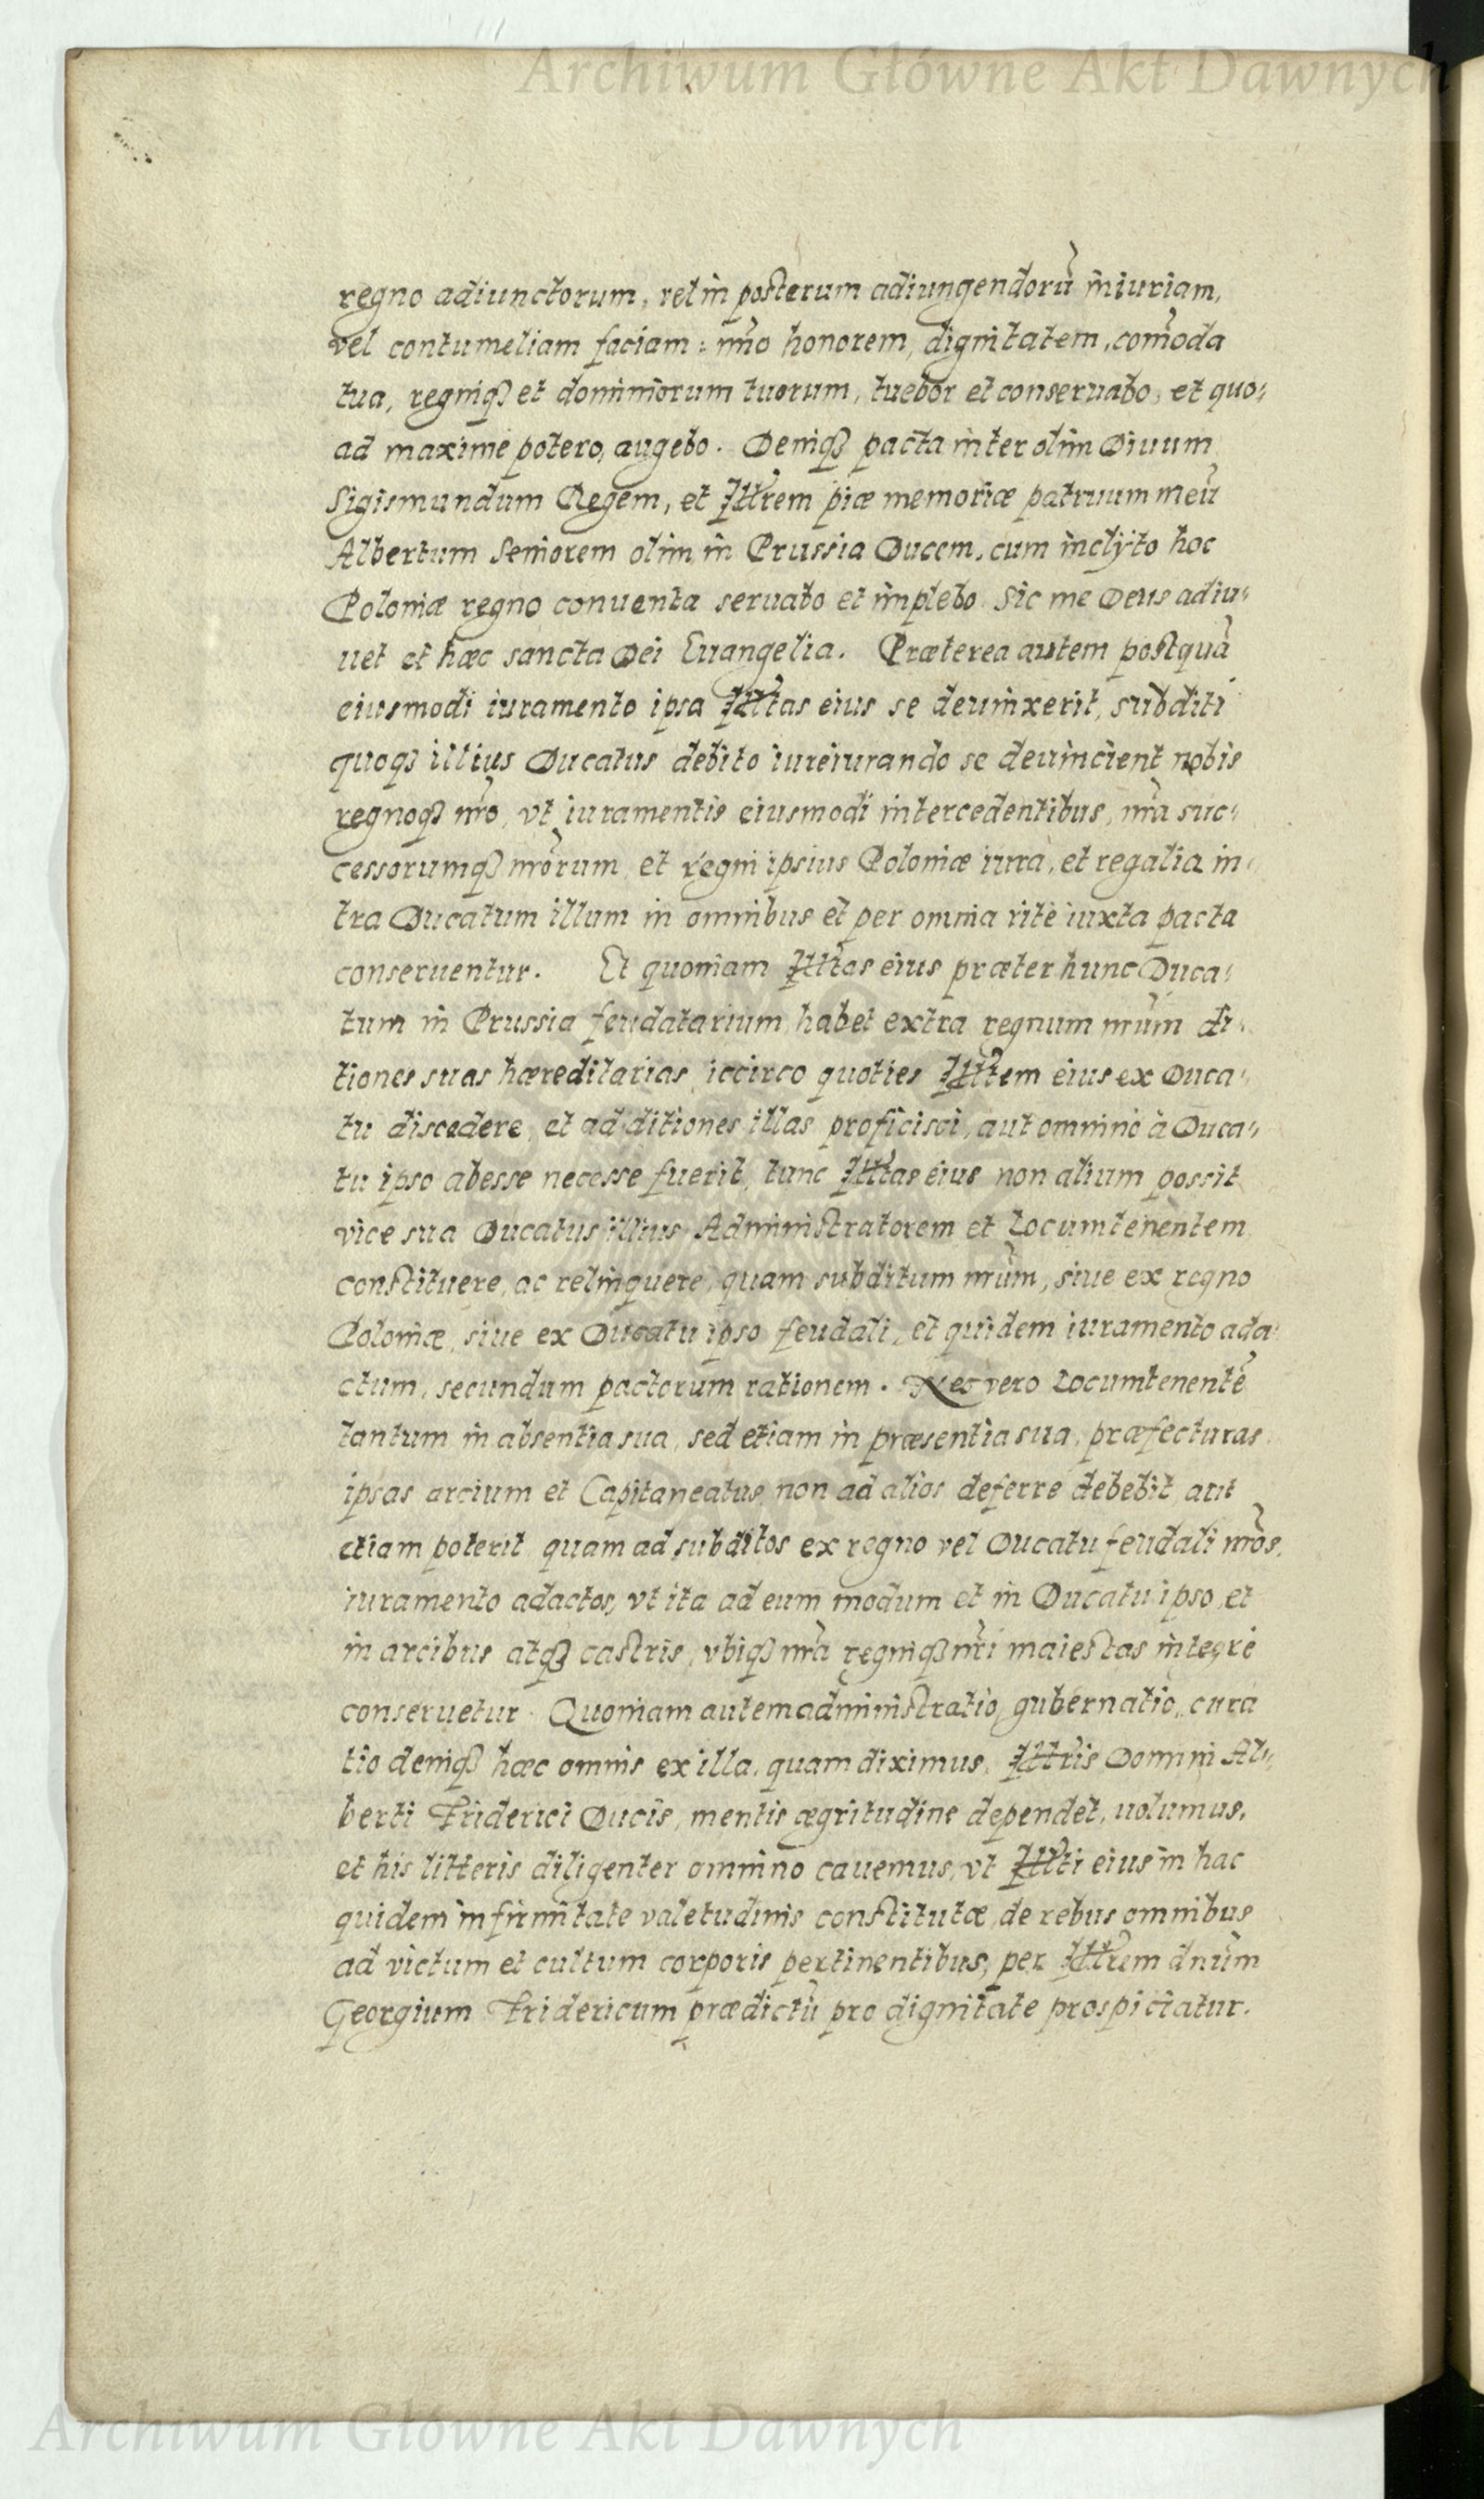 Archiwum Główne Akt Dawnych
regno adiunctorum, vel in posterum adiungendorũ iniuriam,
vel contumeliam faciam: im̃o honorem, dignitatem, com̃oda
tua, regniq̃ et dominiorum tuorum, tuebor et conseruabo, et quo⸗
ad maxime potero, augebo. Deniq̃ pacta inter olim Diuum
Sigismundum Regem, et Illr̃em piæ memoriæ patruum meũ
Albertum Seniorem olim in Prussia Ducem, cum inclyto hoc
Poloniæ regno conuenta seruabo et implebo. Sic me Deus adiu⸗
uet et hæc sancta Dei Euangelia. Præterea autem postquã
eiusmodi iuramento ipsa Illt̃as eius se deuinxerit, subditi
quoq̃ illius Ducatus debito iureiurando se deuincient nobis
regnoq̃ nr̃o, vt iuramentis eiusmodi intercedentibus, nr̃a suc⸗
cessorumq̃ nr̃orum et regni ipsius Poloniæ iura, et regalia in⸗
tra Ducatum illum in omnibus et per omnia rite iuxta pacta
conseruentur. Et quoniam Illt̃as eius præter hunc Duca⸗
tum in Prussia feudatarium habet extra regnum nr̃um di⸗
tiones suas hæreditarias, iccirco quoties Illt̃em eius ex Duca⸗
tu discedere, et ad ditiones illas proficisci, aut omnino à Duca⸗
tu ipso abesse necesse fuerit, tunc Illt̃as eius non alium possit
vice sua Ducatus illius Administratorem et Locumtenentem
constituere, ac relinquere, quam subditum nr̃um, siue ex regno
Poloniæ, siue ex Ducatu ipso feudali, et quidem iuramento ada⸗
ctum, secundum pactorum rationem. Nec vero Locumtenentẽ
tantum in absentia sua, sed etiam in præsentia sua, præfecturas
ipsas arcium et Capitaneatus non ad alios deferre debebit aut
etiam poterit quam ad subditos ex regno vel Ducatu feudali nr̃os,
iuramento adactos, vt ita ad eum modum et in Ducatu ipso, et
in arcibus atq̃ castris, vbiq̃ nr̃a regniq̃ nr̃i maiestas integrè
conseruetur. Quoniam autem administratio, gubernatio, cura
tio deniq̃ hæc omnis ex illa, quam diximus, Illr̃is Domini Al⸗
berti Friderici Ducis, mentis ægritudine dependet, uolumus,
et his litteris diligenter omnino cauemus, vt Illt̃i eius in hac
quidem infirmitate valetudinis constitutæ, de rebus omnibus
ad victum et cultum corporis pertinentibus, per Illr̃em dnũm
Georgium Fridericum prædictũ pro dignitate prospiciatur.
Archiwum Główne Akt Dawnych